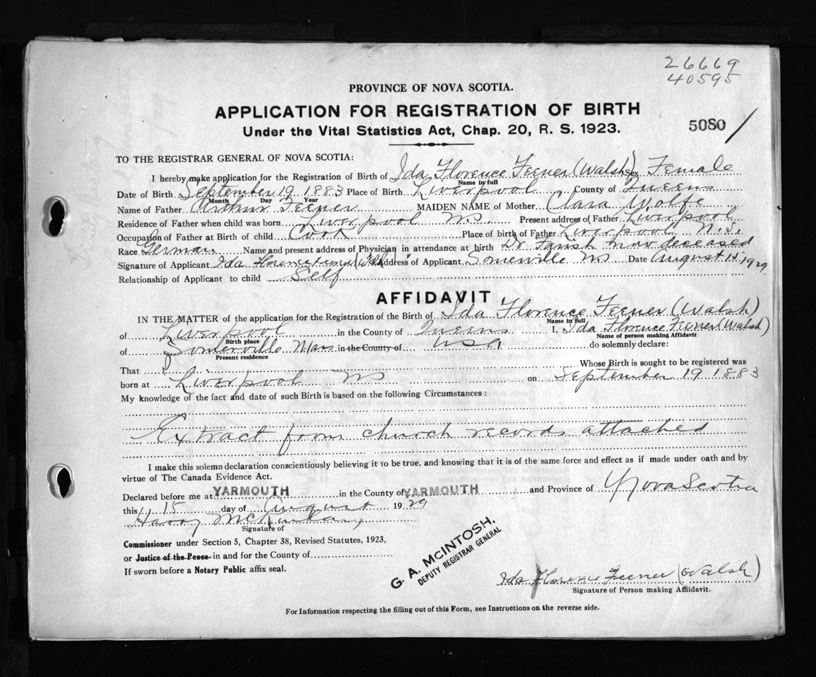 26669
40595
PROVINCE OF NOVA SCOTIA.
APPLICATION FOR REGISTRATION OF BIRTH
Under the Vital Statistics Act, Chap. 20, R. S. 1923.
5080 /
TO THE REGISTRAR GENERAL OF NOVA SCOTIA:
I hereby make application for the Registration of Birth of Ida Florence Feener (Walsh) Sex Female
Name in full
Date of Birth September 19 1883 Place of Birth Liverpool County of Queens
Month Day Year
Name of Father Arthur Feener MAIDEN NAME of Mother Clara Wolfe
Residence of Father when child was born Liverpool N.S. Present address of Father Liverpool
Occupation of Father at Birth of child Cook Place of birth of Father Liverpool N.S.
Race German Name and present address of Physician in attendance at birth Dr Farish now deceased
Signature of Applicant Ida Florence Address of Applicant Somerville Ms Date August 14 1929
Relationship of Applicant to child Self
AFFIDAVIT
IN THE MATTER of the application for the Registration of the Birth of Ida Florence Feener (Walsh)
Name in full
of Liverpool in the County of Queens I, Ida Florence Feener (Walsh)
Birth place Name of person making Affidavit
of Somerville Mass in the County of USA do solemnly declare:
Present residence
That Whose Birth is sought to be registered was
born at Liverpool NS on September 19 1883
My knowledge of the fact and date of such Birth is based on the following Circumstances:
Extract from church records attached
I make this solemn declaration conscientiously believing it to be true, and knowing that it is of the same force and effect as if made under oath and by
virtue of The Canada Evidence Act.
Declared before me at YARMOUTH in the County of YARMOUTH and Province of Nova Scotia
this 15 day of August 1929
Harry
Signature of
Commissioner under Section 5, Chapter 38, Revised Statutes, 1923,
or Justice of the Peace in and for the County of
If sworn before a Notary Public affix seal.
G. A. McINTOSH,
DEPUTY REGISTRAR GENERAL
Ida Florence Feener (Walsh)
Signature of Person making Affidavit.
For Information respecting the filling out of this Form, see Instructions on the reverse side.